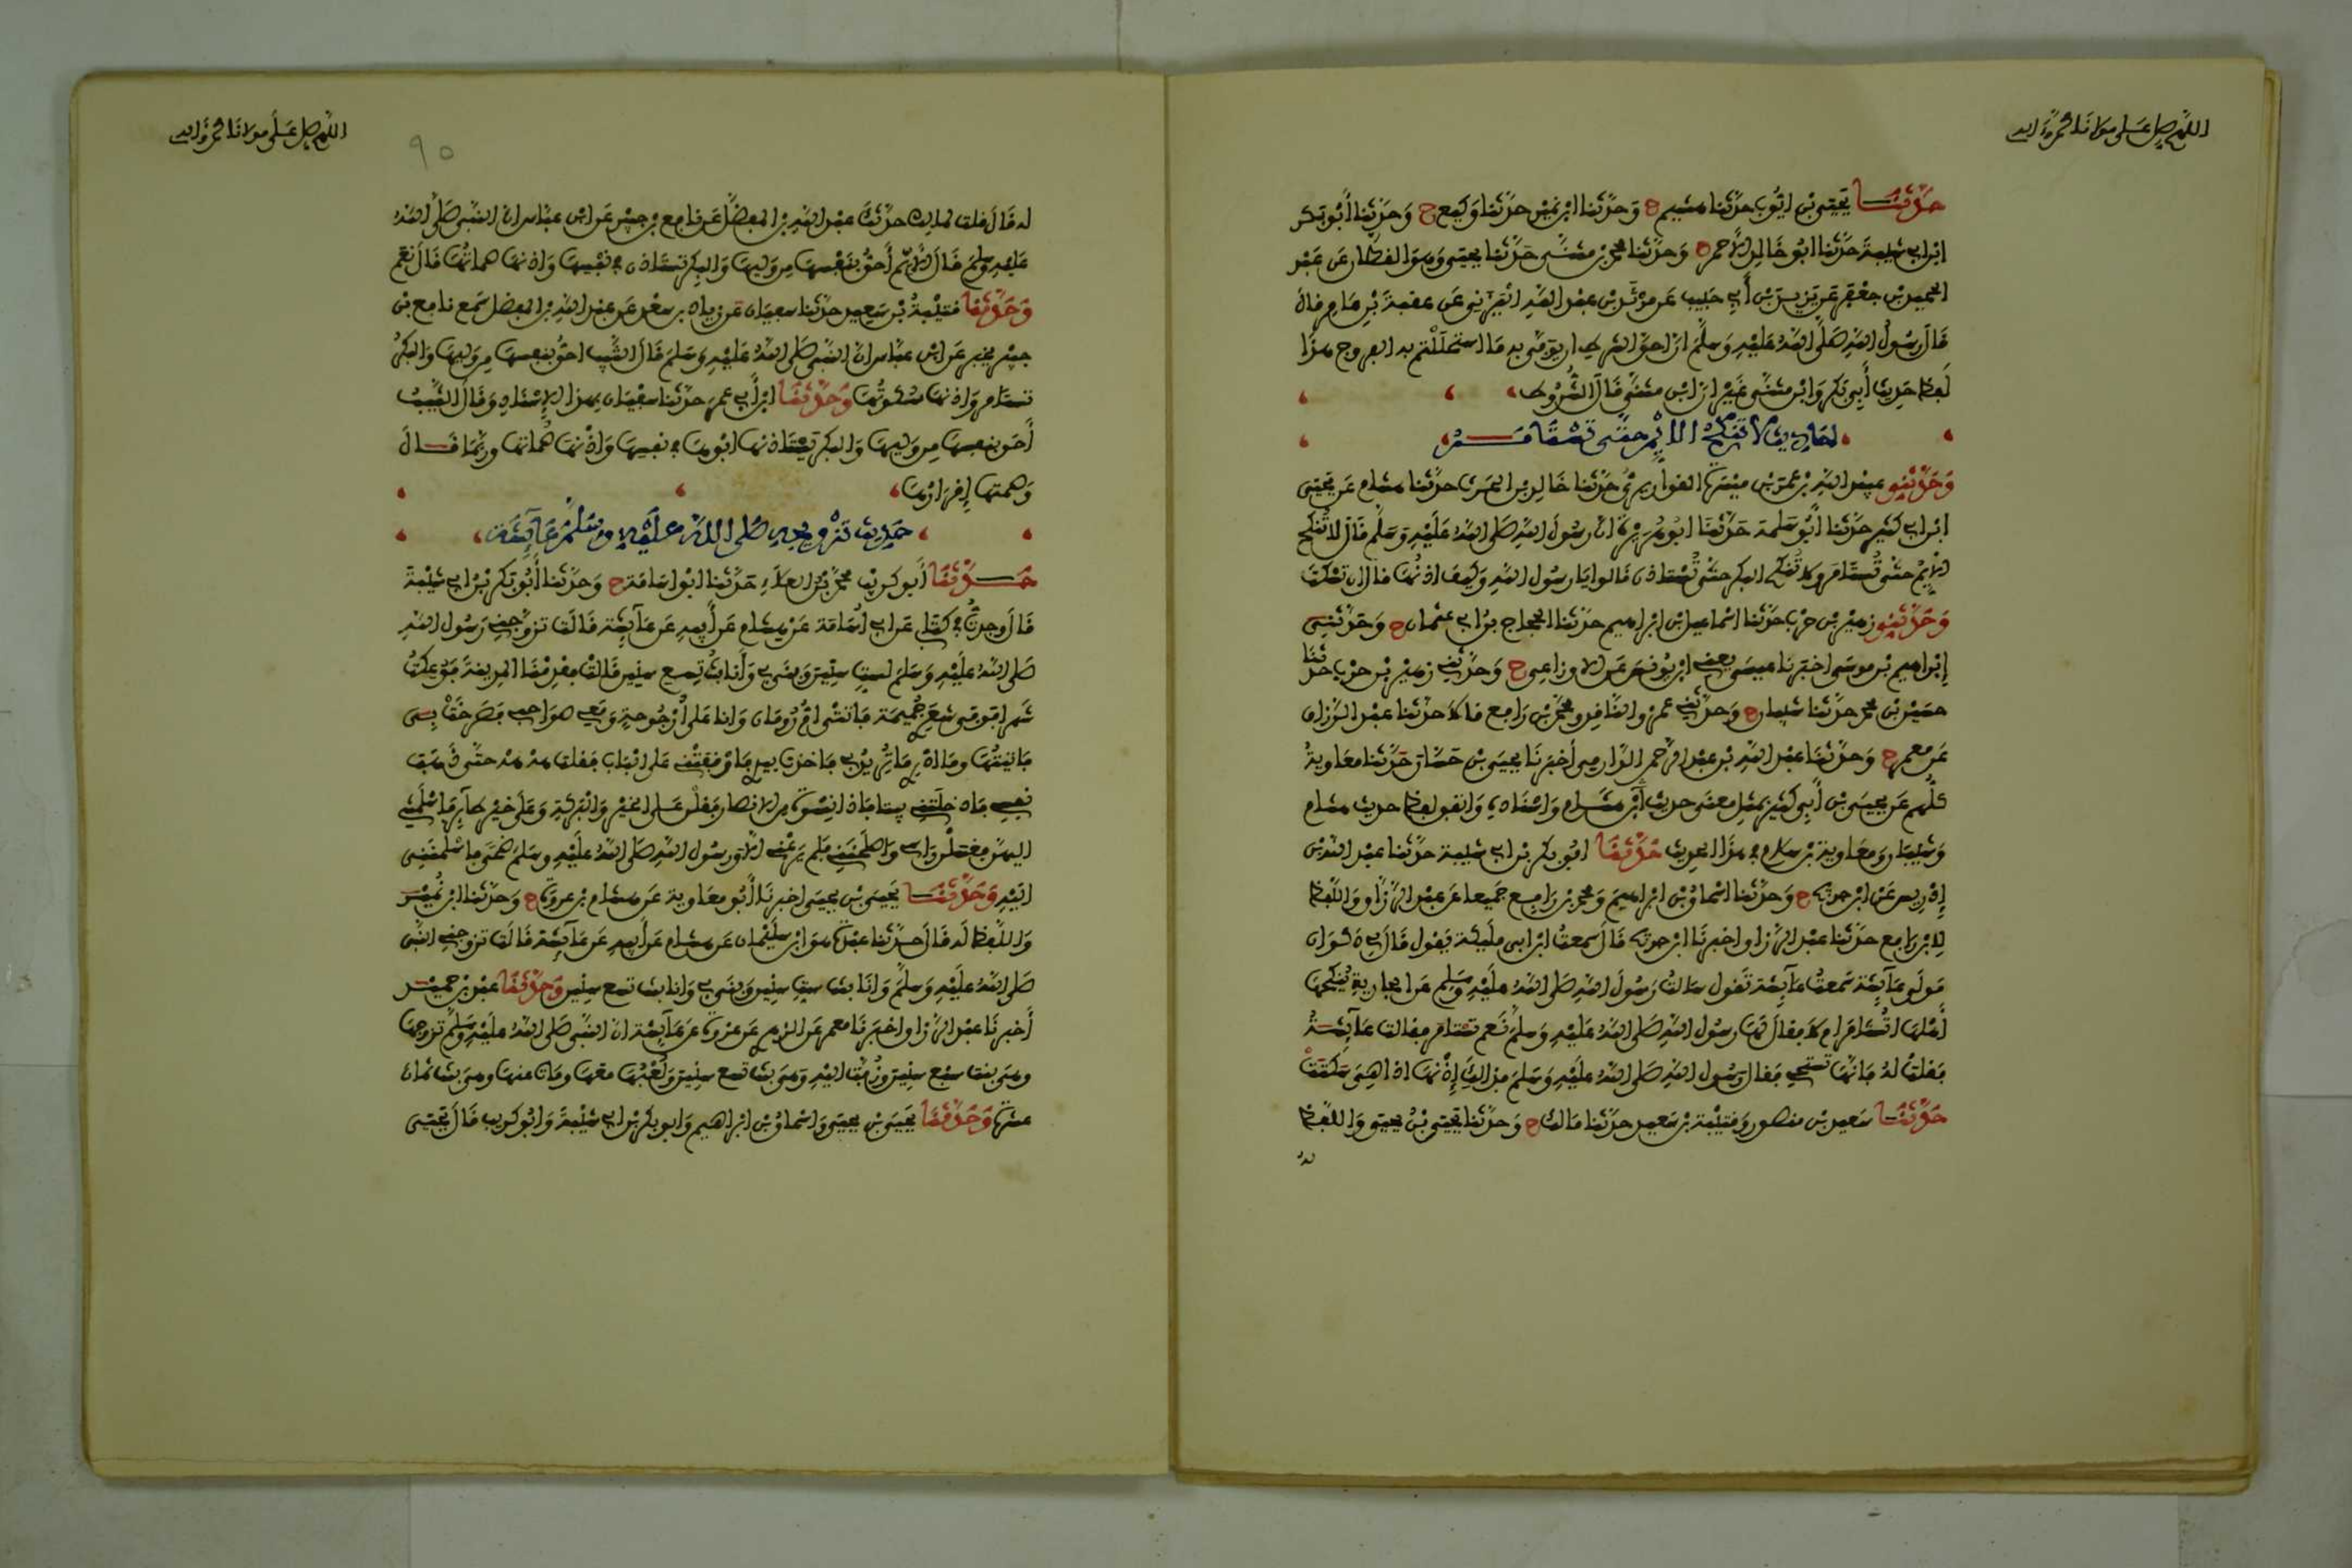 اللهم صل على مولانا محمد وءاله
حدثنا يحيى بن ايوب حدثنا هشيم ح وحدثنا ابن نمير حدثنا وكيع ح وحدثنا أبو بكر
ابن ابي شيبة حدثنا ابو خالد الأحمر ح وحدثنا محمد بن مثنى حدثنا يحيى وهو القطان عن عبد
الحميد بن جعفر عن يزيد بن أبي حبيب عن مرثد بن عبد الله اليزني عن عقبة بن عامر قال
قال رسول الله صلى الله عليه وسلم ان احق الشرط ان يوفى به ما استحللتم به الفروج هذا
لفظ حديث أبي بكر وابن مثنى غير ان ابن مثنى قال الشروط
احاديث لا تنكح الايم حتى تستامر
وحدثني عبيد الله بن عمر بن ميسرة القواريري حدثنا خالد بن الحرث حدثنا هشام عن يحيى
ابن ابي كثير حدثنا أبو سلمة حدثنا ابو هريرة ان رسول الله صلى الله عليه وسلم قال لا تنكح
الايم حتى تستامر ولا تنكح البكر حتى تستاذن قالوا يا رسول الله وكيف اذنها قال ان تسكت
وحدثني زهير بن حرب حدثنا اسماعيل بن ابراهيم حدثنا الحجاج بن ابي عثمان ح وحدثني
إبراهيم بن موسى اخبرنا عيسى يعني ابن يونس عن الاوزاعي ح وحدثني زهير بن حرب حدثنا
حسين بن محمد حدثنا شيبان ح وحدثني عمرو الناقد ومحمد بن رافع قالا حدثنا عبد الرزاق
عن معمر ح وحدثنا عبد الله بن عبد الرحمن الدارمي أخبرنا يحيى بن حسان حدثنا معاوية
كلهم عن يحيى بن أبي كثير بمثل معنى حديث هشام واسناده واتفق لفظ حديث هشام
وشيبان ومعاوية بن سلام في هذا الحديث حدثنا ابو بكر بن ابي شيبة حدثنا عبد الله بن
إدريس عن ابن جريج ح وحدثنا اسحاق بن ابراهيم ومحمد بن رافع جميعا عن عبد الرزاق واللفظ
لابن رافع حدثنا عبد الرزاق اخبرنا ابن جريج قال سمعت ابن ابي مليكة يقول قال ذكوان
مولى عائشة سمعت عائشة تقول سالت رسول الله صلى الله عليه وسلم عن الجارية ينكحها
أهلها اتستامر ام لا فقال لها رسول الله صلى الله عليه وسلم نعم تستامر فقالت عائشة
فقلت له فانها تستحي فقال رسول الله صلى الله عليه وسلم فذلك إذنها اذا هي سكتت
حدثنا سعيد بن منصور وقتيبة بن سعيد حدثنا مالك ح وحدثنا يحيى بن يحيى واللفظ
له
اللهم صل على مولانا محمد وءاله
٩٠
له قال قلت لمالك حدثك عبد الله بن الفضل عن نافع بن جبير عن ابن عباس ان النبي صلى الله
عليه وسلم قال الأيم أحق بنفسها من وليها والبكر تستاذن في نفسها واذنها صماتها قال نعم
وحدثنا قتيبة بن سعيد حدثنا سفيان عن زياد بن سعد عن عبد الله بن الفضل سمع نافع بن
جبير يخبر عن ابن عباس ان النبي صلى الله عليه وسلم قال الثيب احق بنفسها من وليها والبكر
تستامر واذنها سكوتها وحدثنا ابن أبي عمر حدثنا سفيان بهذا الإسناد وقال الثيب
أحق بنفسها من وليها والبكر يستاذنها ابوها في نفسها واذنها صماتها وربما قال
وصمتها إقرارها
حديث تزويجه صلى الله عليه وسلم عائشة
حدثنا أبو كريب محمد بن العلاء حدثنا ابو اسامة ح وحدثنا أبو بكر بن ابي شيبة
قال وجدت في كتابي عن ابي اسامة عن هشام عن أبيه عن عائشة قالت تزوجني رسول الله
صلى الله عليه وسلم لست سنين وبنى بي وأنا بنت تسع سنين قالت فقدمنا المدينة فوعكت
شهرا فوفى شعري جميمة فاتتني ام رومان وانا على أرجوحة ومعي صواحبي فصرخت بي
فاتيتها وما ادري ما تريد بي فاخذت بيدي فاوقفتني على الباب فقلت هه هه حتى ذهب
نفسي فادخلتني بيتا فاذا نسوة من الانصار فقلن على الخير والبركة وعلى خير طائر فاسلمتني
اليهن فغسلن راسي واصلحنني فلم يرعني الا ورسول الله صلى الله عليه وسلم ضحى فاسلمنني
اليه وحدثنا يحيى بن يحيى اخبرنا أبو معاوية عن هشام بن عروة ح وحدثنا ابن نمير
واللفظ له قال حدثنا عبدة هو ابن سليمان عن هشام عن أبيه عن عائشة قالت تزوجني النبي
صلى الله عليه وسلم وانا بنت ست سنين وبنى بي وانا بنت تسع سنين وحدثنا عبد بن حميد
أخبرنا عبد الرزاق اخبرنا معمر عن الزهري عن عروة عن عائشة ان النبي صلى الله عليه وسلم تزوجها
وهي بنت سبع سنين وزفت اليه وهي بنت تسع سنين ولعبها معها ومات عنها وهي بنت ثمان
عشرة وحدثنا يحيى بن يحيى واسحاق بن ابراهيم وابو بكر بن ابي شيبة وابو كريب قال يحيى